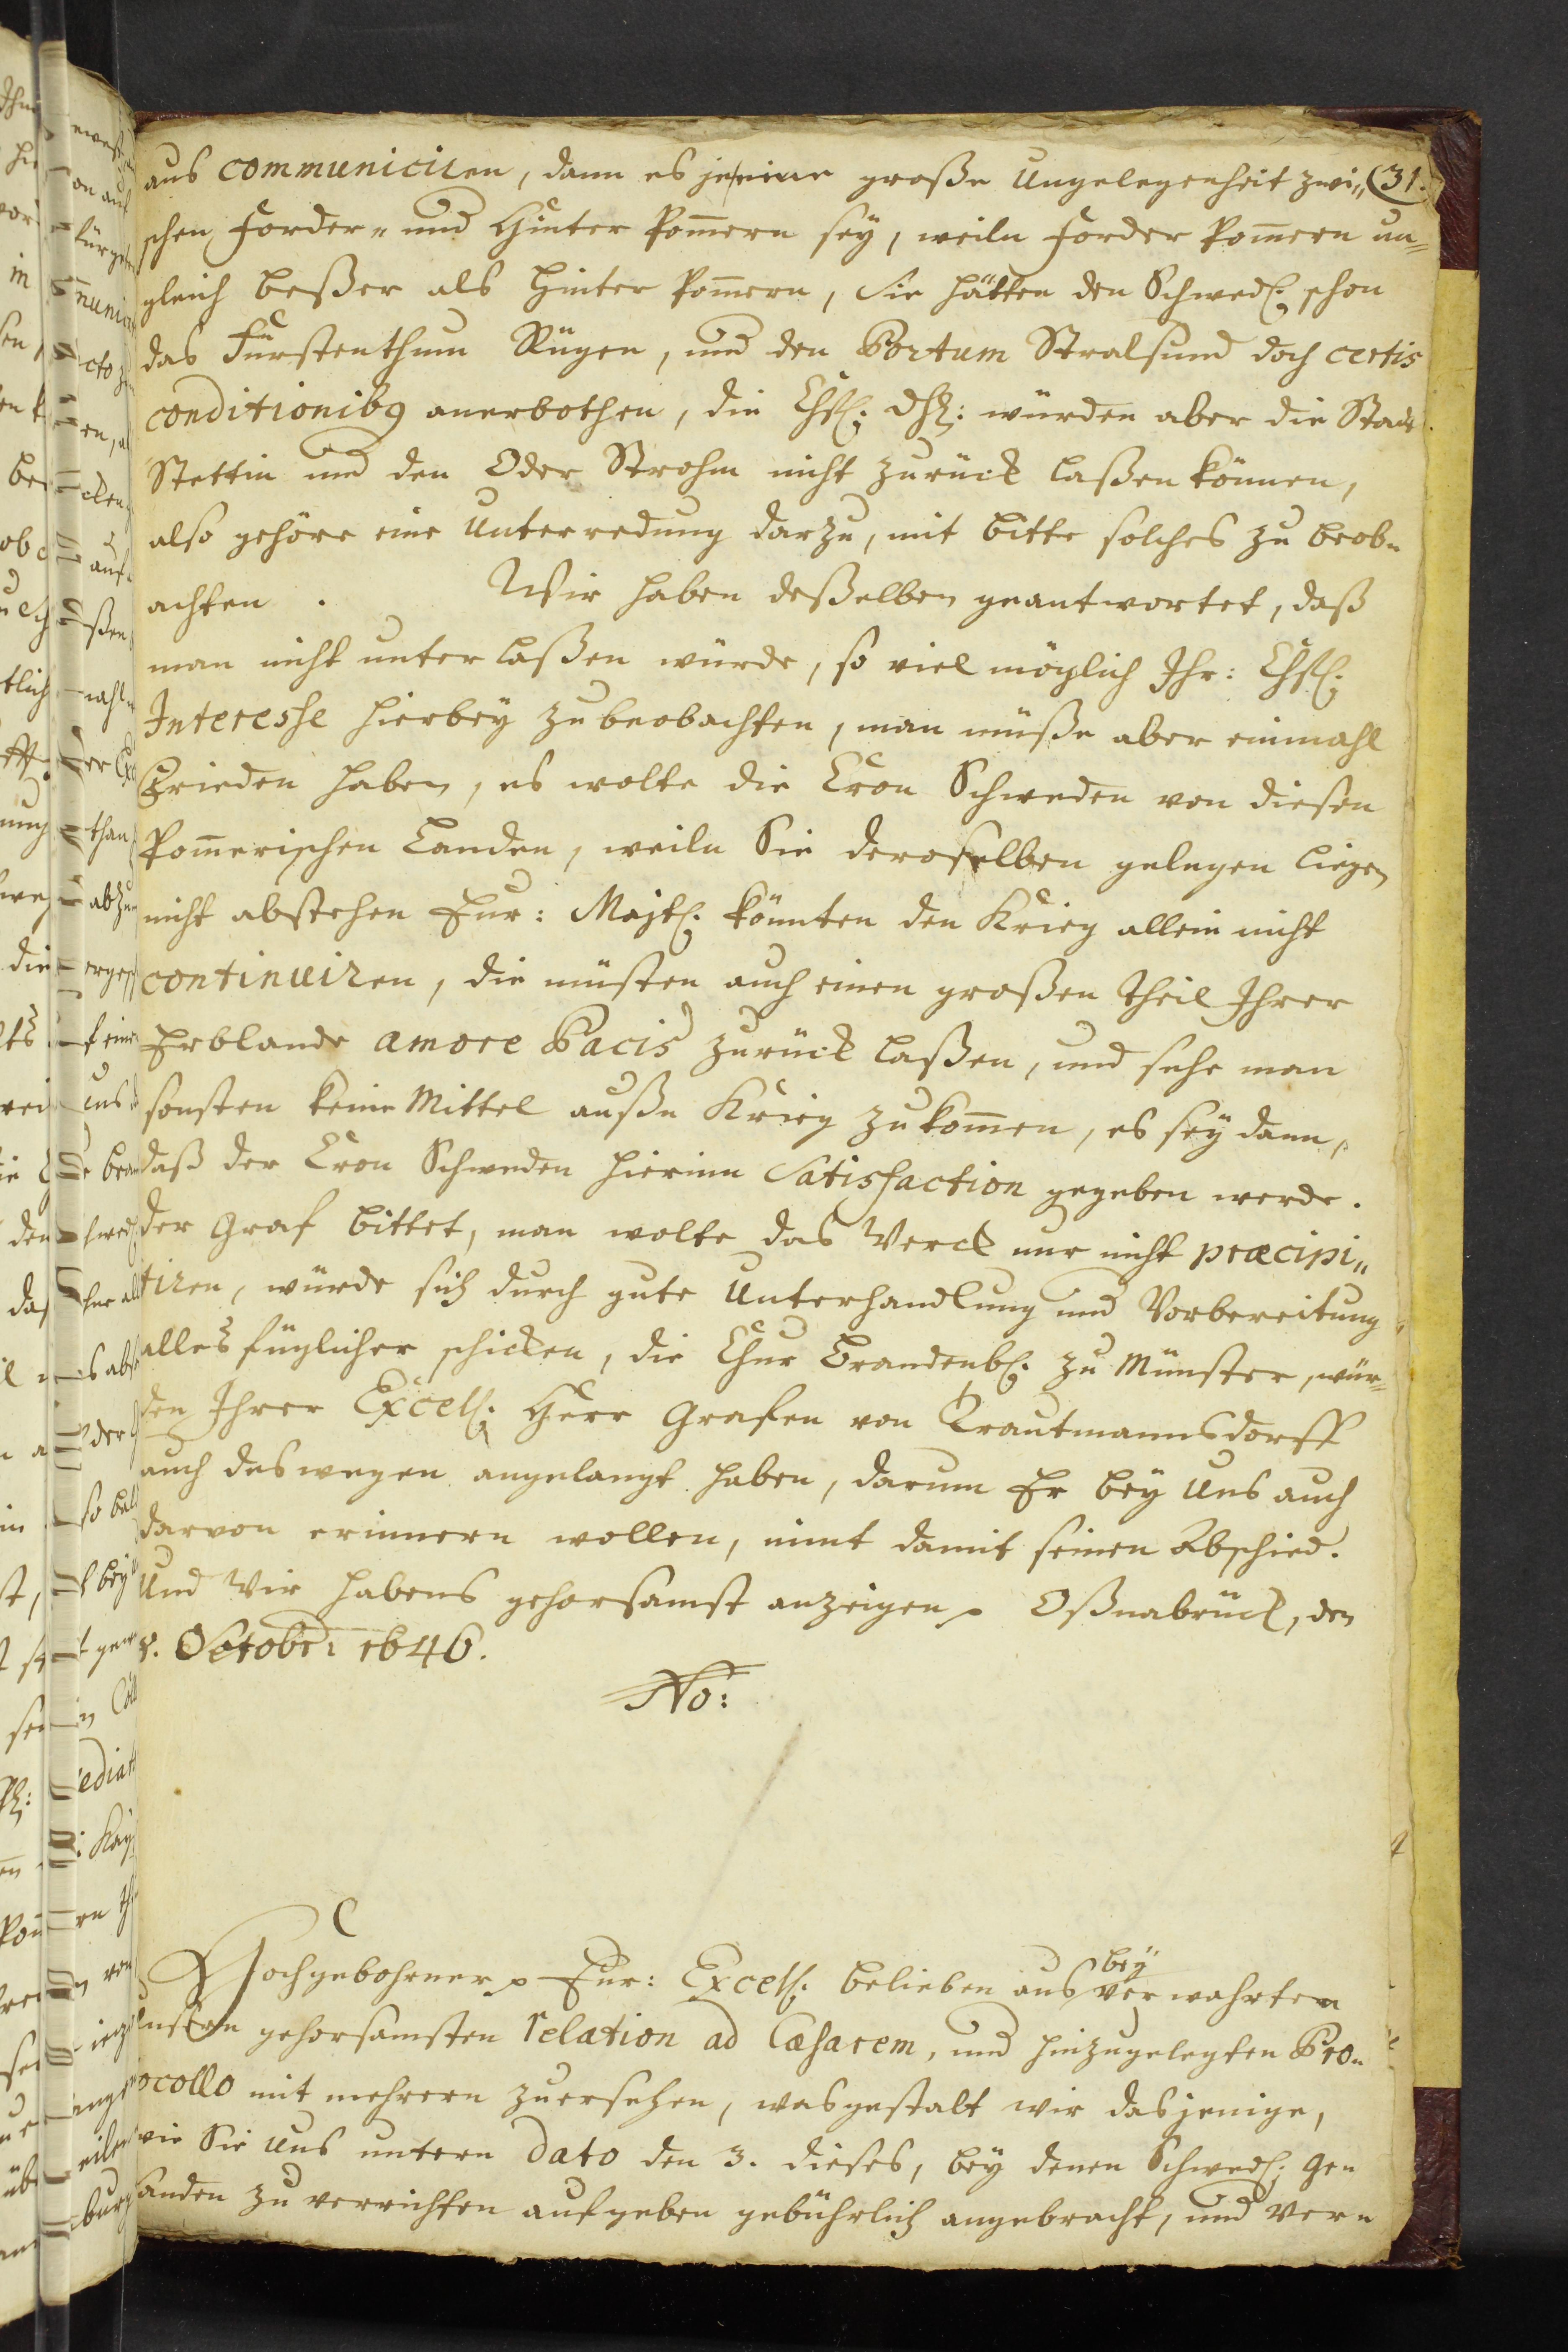 aus communiciren, dann es je seine große Ungelegenheit zwi„ (31.
schen Forder- und Hinter Pom̄ern seÿ, weiln Forder Pom̄ern un=
gleich beßer als Hinter Pom̄ern, Sie hätten den Schwed. schon
das Fürstenthum Rügen, und den Portum Stralsund doch certis
conditionibq anerbothen, die Chf. Dhl: würden aber die Stadt
Stettin und den Oder Strohm nicht zurück laßen können,
also gehöre eine Unterredung darzu, mit bitte solches zu beob-
achten. Wir haben deßelben geantwortet, daß
man nicht unterlaßen würde, so viel möglich Ihr: Chfl.
Interesse hierbeÿ zu beobachten, man müße aber einmahl
Frieden haben, es wolte die Cron Schweden von diesen
Pom̄erischen Landen, weiln Sie deroselben gelegen liegen
nicht abstehen Eur: Majt. könnten den Krieg allein nicht
continuiren, die müsten auch einen großen theil Ihrer
Erblande amore Pacis zurück laßen, und sehe man
sonsten keine Mittel außn Krieg zu kom̄en, es seÿ dann,
daß der Cron Schweden hierinn Satisfaction gegeben werde.
der Graf bittet, man wolte das Werck nur nicht præcipi„
tiren, würde sich durch gute Unterhandlung und Vorbereitung
alles füglicher schicken, die Chur Brandenb. zu Münster, wür=
den Ihrer Excell. Herr Grafen von Trautmannsdorff
auch deswegen angelangt haben, darum Er beÿ Uns auch
darvon erinnern wollen, nimt damit seinen Abschied.
Und Wir habens gehorsamst anzeigen p Oßnabrück, den
8. Octobr: 1646.
No:
Hochgebohrner p Eur: Excell. belieben aus beÿ verwahrten
unsern gehorsamsten relation ad Cæsarem, und hinzugelegten Pro-
ocollo mit mehrern zuersehen, wasgestalt wir dasjenige,
wie Sie Uns untern dato den 3. dieses, beÿ denen Schwed. Gen
sanden zu verrichten aufgeben gebührlich angebracht, und Ver-